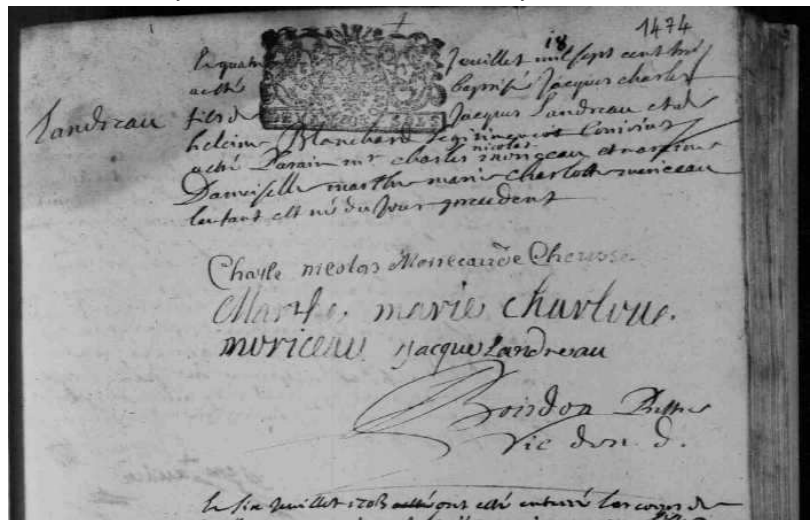 1474
18
Le quatre Jeuillet mil sept cent trois
a esté baptisé Jacques charles
Landreau
fils de Jacques Landreau et de
heleine Blanchard legitimement conioins
a esté Parain mr charles nicolas moriceau et maraine
Damoiselle marthe marie charlotte moriceau
lenfant est né du Jour precedent
Charle nicolas Moriceau de Cheusse
Marthe marie charlotte
moriceau Jacque Landreau
Boisdon Prestre
Vic don. d.
Le six Jeuillet 1703 ont esté enterré Le corps de